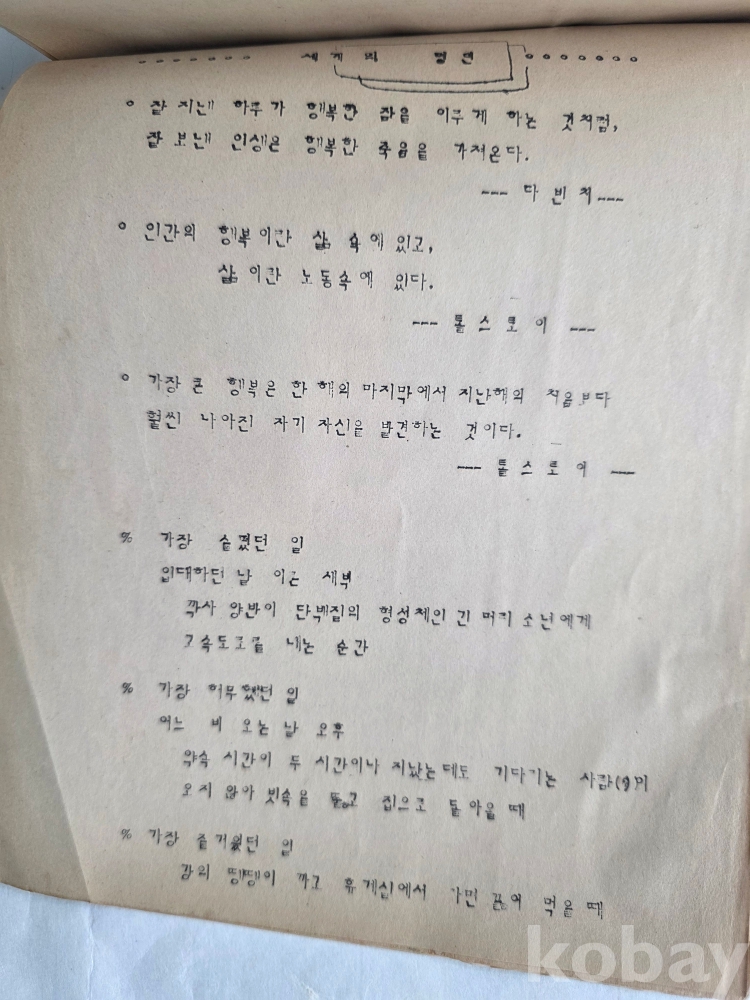 세계의 명언
◦ 잘 지낸 하루가 행복한 잠을 이루게 하는 것처럼,
잘 보낸 인생은 행복한 죽음을 가져온다.
--- 다빈치 ---
◦ 인간의 행복이란 삶 속에 있고,
삶이란 노동속에 있다.
--- 톨스토이 ---
◦ 가장 큰 행복은 한 해의 마지막에서 지난해의 처음보다
훨씬 나아진 자기 자신을 발견하는 것이다.
--- 톨스토이 ---
% 가장 슬펐던 일
입대하던 날 이른 새벽
깍사 양반이 단백질의 형성체인 긴 머리 소년에게
고속도로를 내는 순간
% 가장 허무했던 일
어느 비 오는 날 오후
약속 시간이 두 시간이나 지났는데도 기다리는 사람(우)이
오지 않아 빗속을 뚫고 집으로 돌아올 때
% 가장 즐거웠던 일
땡땡이 까고 휴게실에서 라면 끓여 먹을 때
kobay